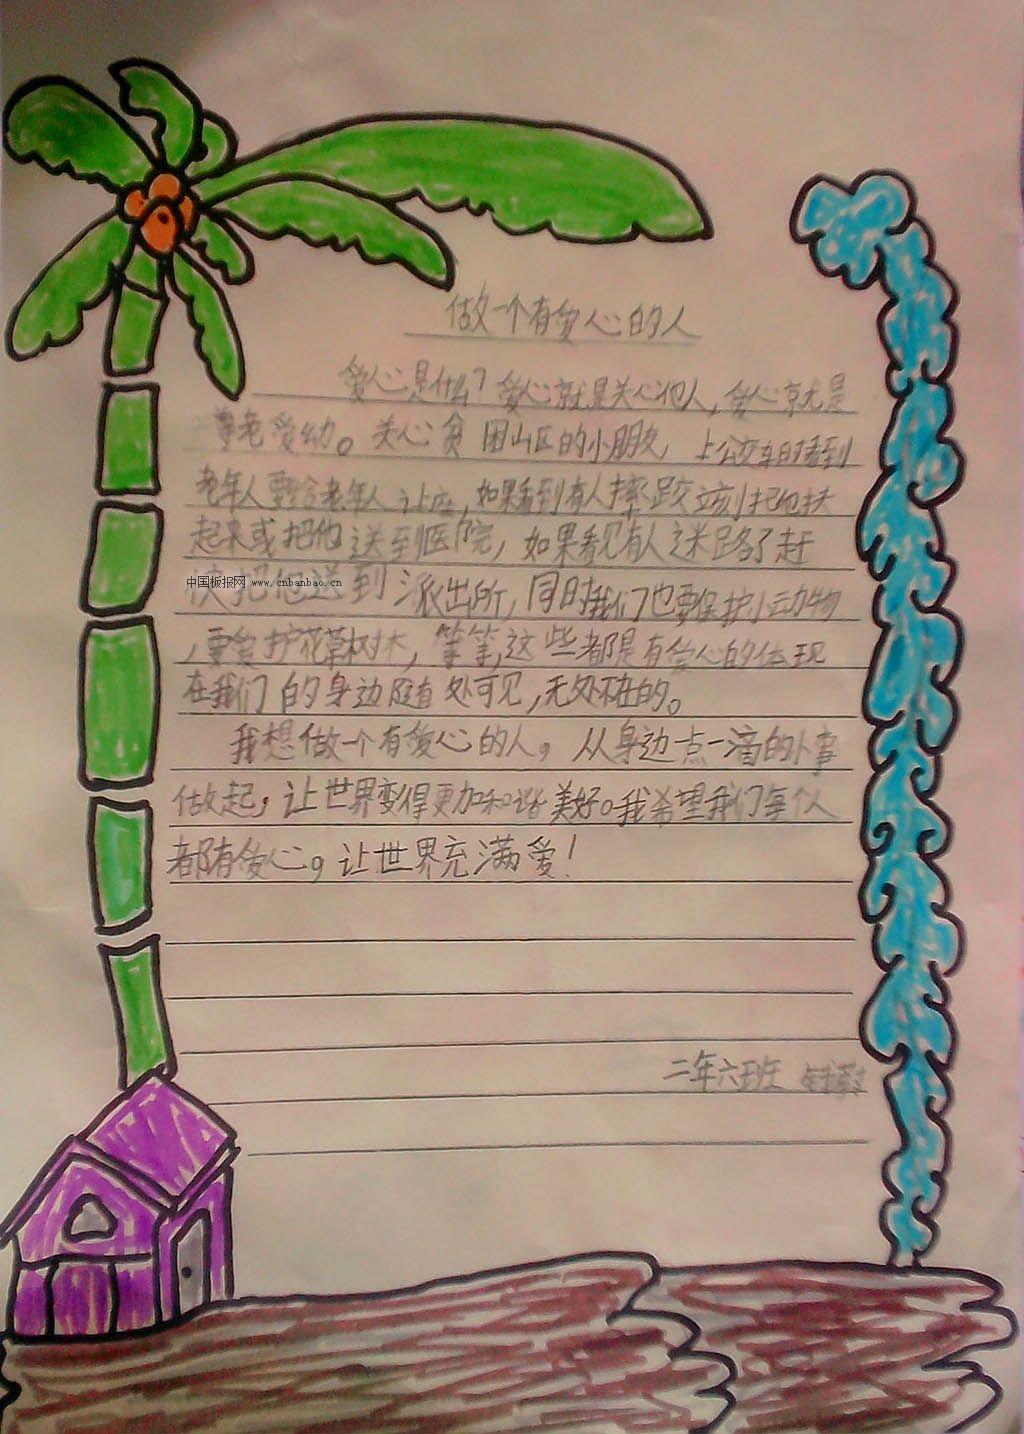 做一个有爱心的人
爱心是什么?爱心就是关心他人,爱心就是
尊老爱幼。关心贫困山区的小朋友 上公交车时看到
老年人要给老年人让座,如果看到有人摔跤立刻把他扶
起来或把他送到医院,如果看见有人迷路了赶
快把他送到派出所,同时我们也要保护小动物
,要爱护花草树木,等等,这些都是有爱心的体现
在我们的身边随有处可见,无处不在的。
我想做一个有爱心的人,从身边点一滴的小事
做起,让世界变得更加和谐美好。我希望我们每个人
都有爱心,让世界充满爱!
二年六班
中国板报网 www.cnbanbao.cn